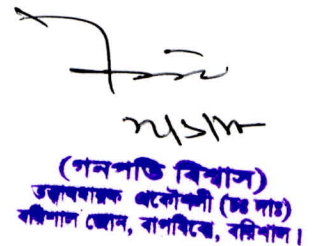 (গনপতি বিশ্বাস)
তত্ত্বাবধায়ক প্রকৌশলী (চঃ দাঃ)
বরিশাল জোন, বাপবিবো, বরিশাল।